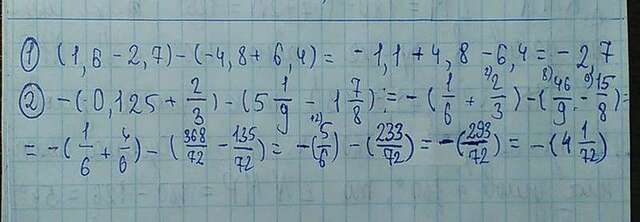 ① (1,6 - 2,7) - (-4,8 + 6,4) = -1,1 + 4,8 - 6,4 = -2,7
② -(0,125 + 2/3) - (5 1/9 - 1 7/8) = -(1/6 + 2/3) - (46/9 - 15/8) =
= -(1/6 + 4/6) - (368/72 - 135/72) = -(5/6) - (233/72) = -(293/72) = -(4 1/72)